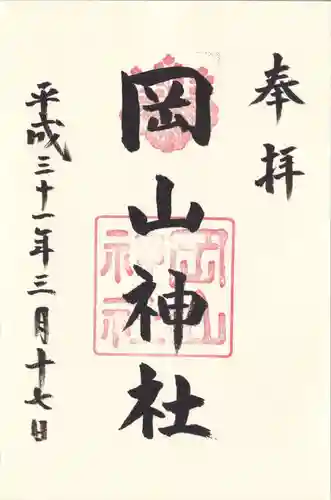 奉拝
岡山神社
岡山
神社
平成三十一年三月十七日